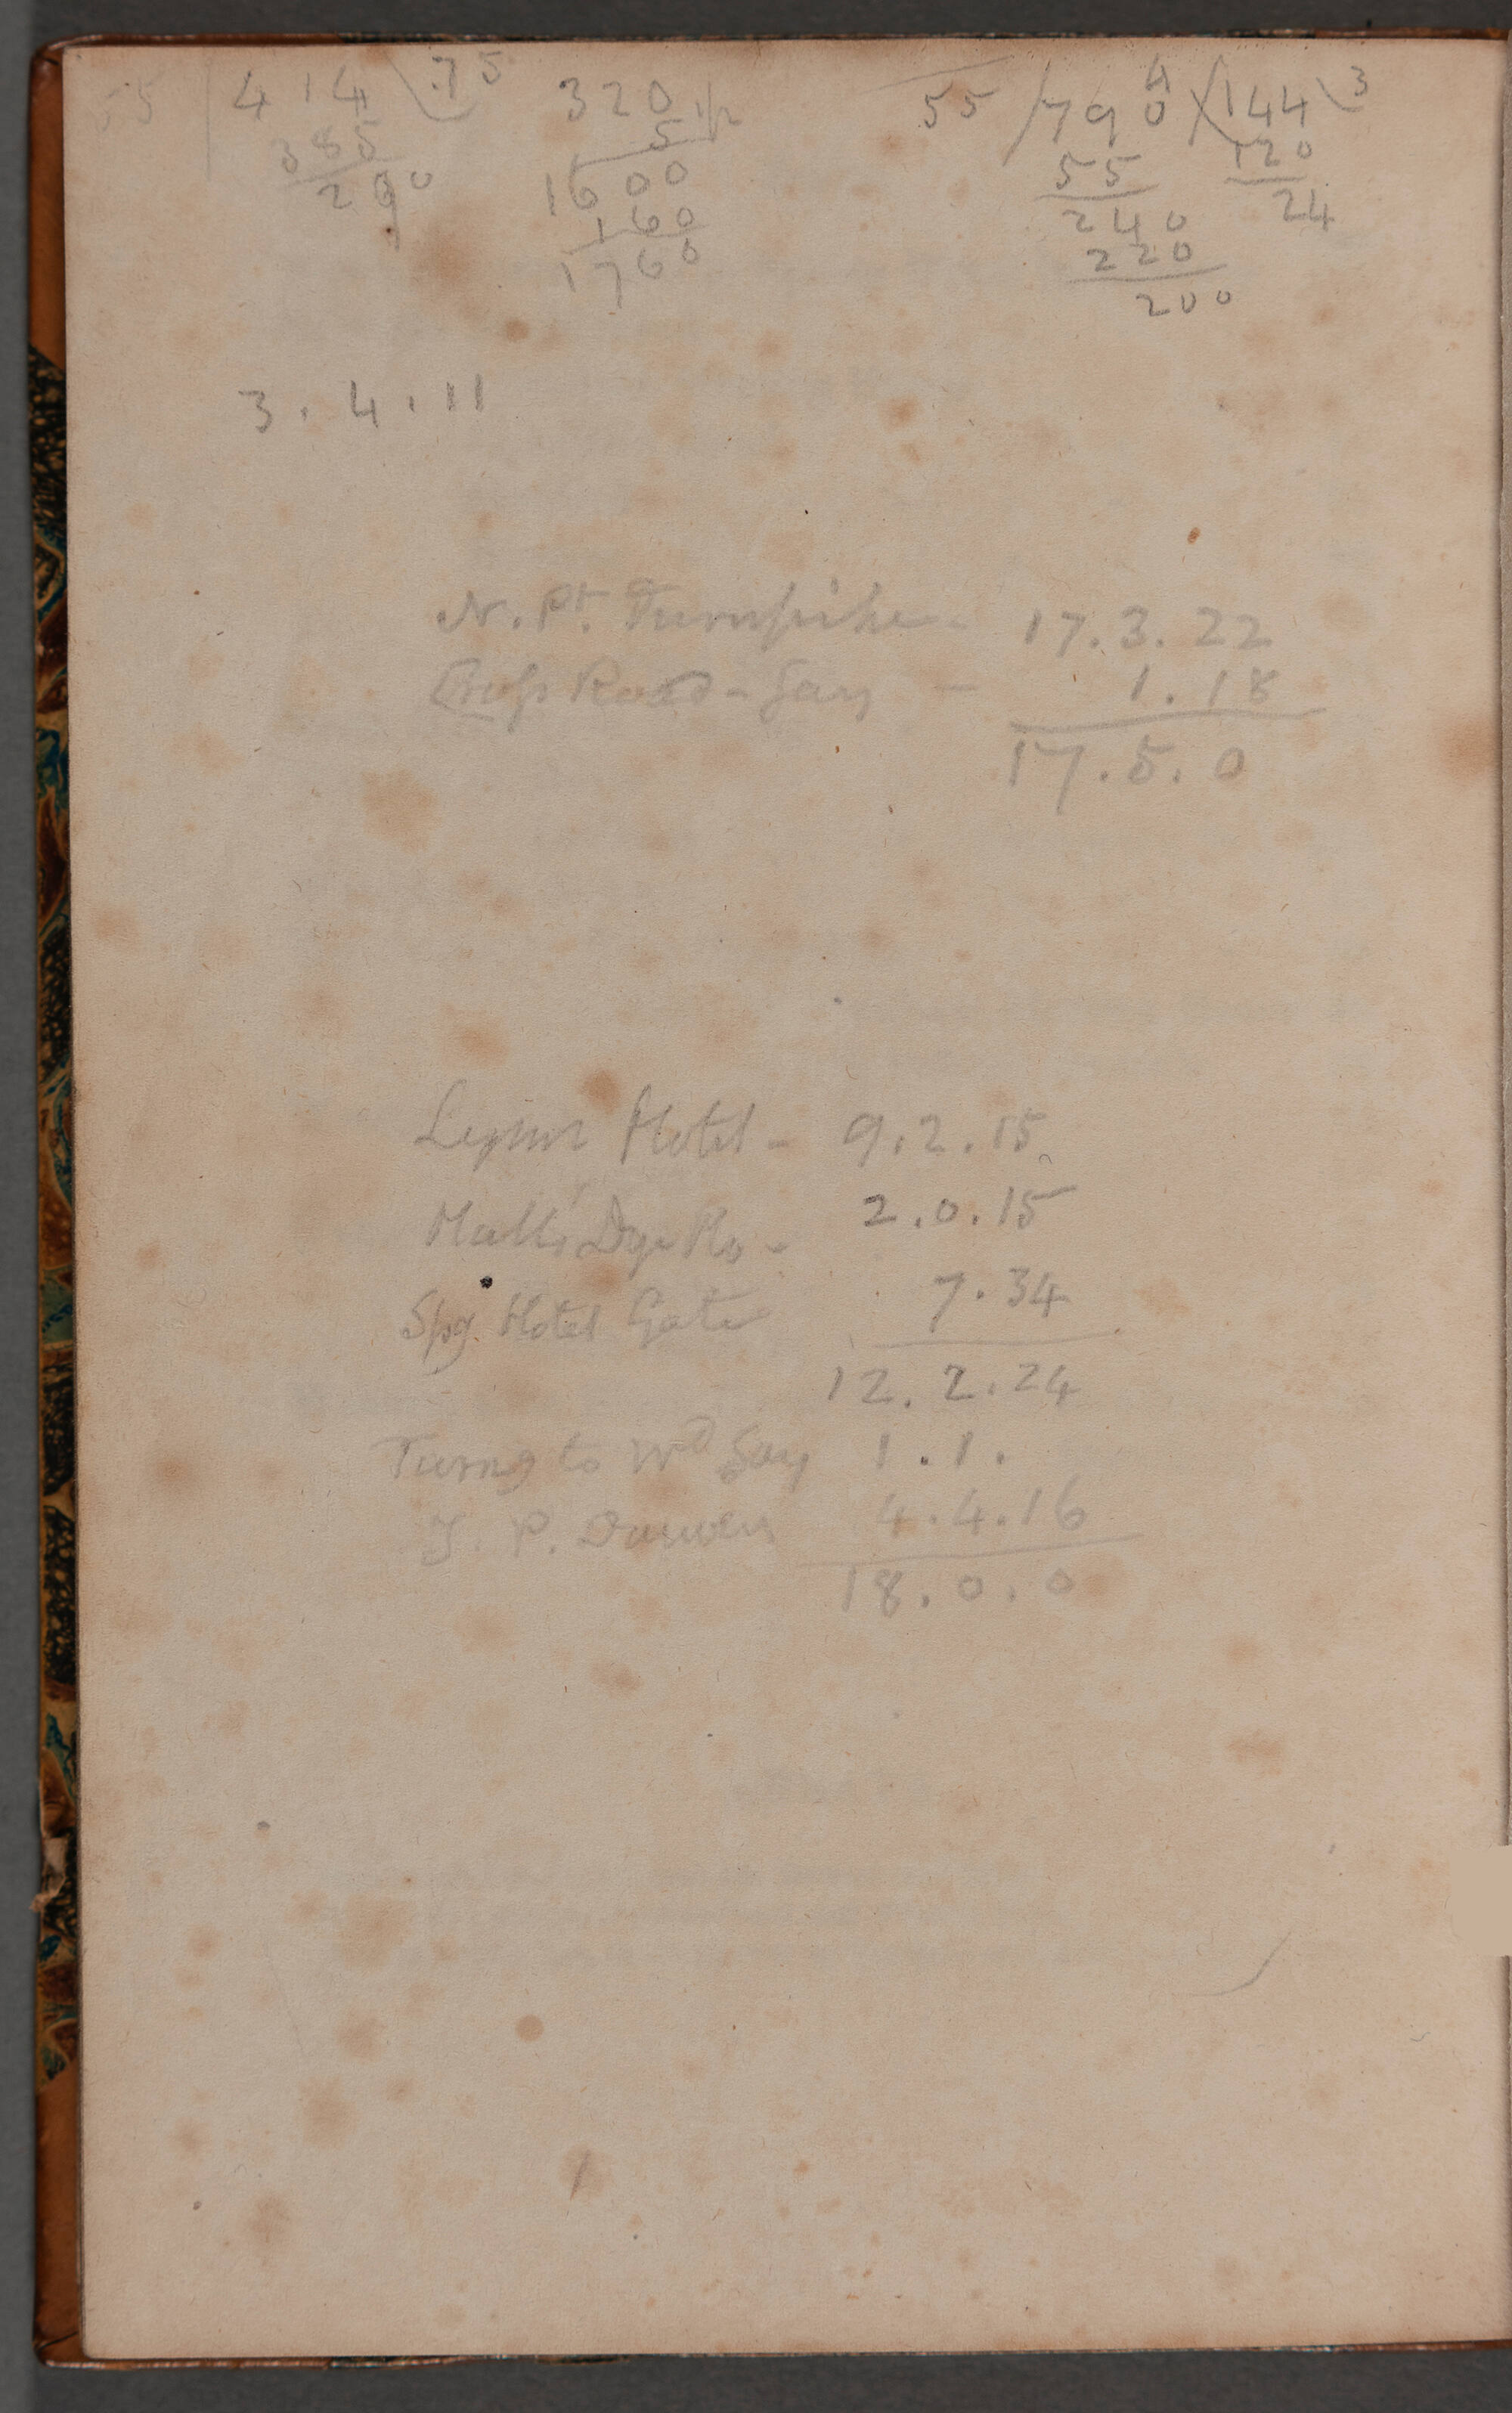 55 / 414 \ 75
385
290
320
5 1/2
1600
160
1760
55 / 790 X 144 \ 3
4
55
120
240
24
220
200
3 . 4 . 11
N. Pt. Turnpike - 17. 3. 22
Cross Road - Say - 1. 18
17. 5. 0
Hotel - 9. 2. 15
Hall's Dye Ho - 2. 0. 15
Spg. Hotel Gate 7. 34
12. 2. 24
Turng to Wd Say 1. 1.
J. P. Darwen 4. 4. 16
18. 0. 0